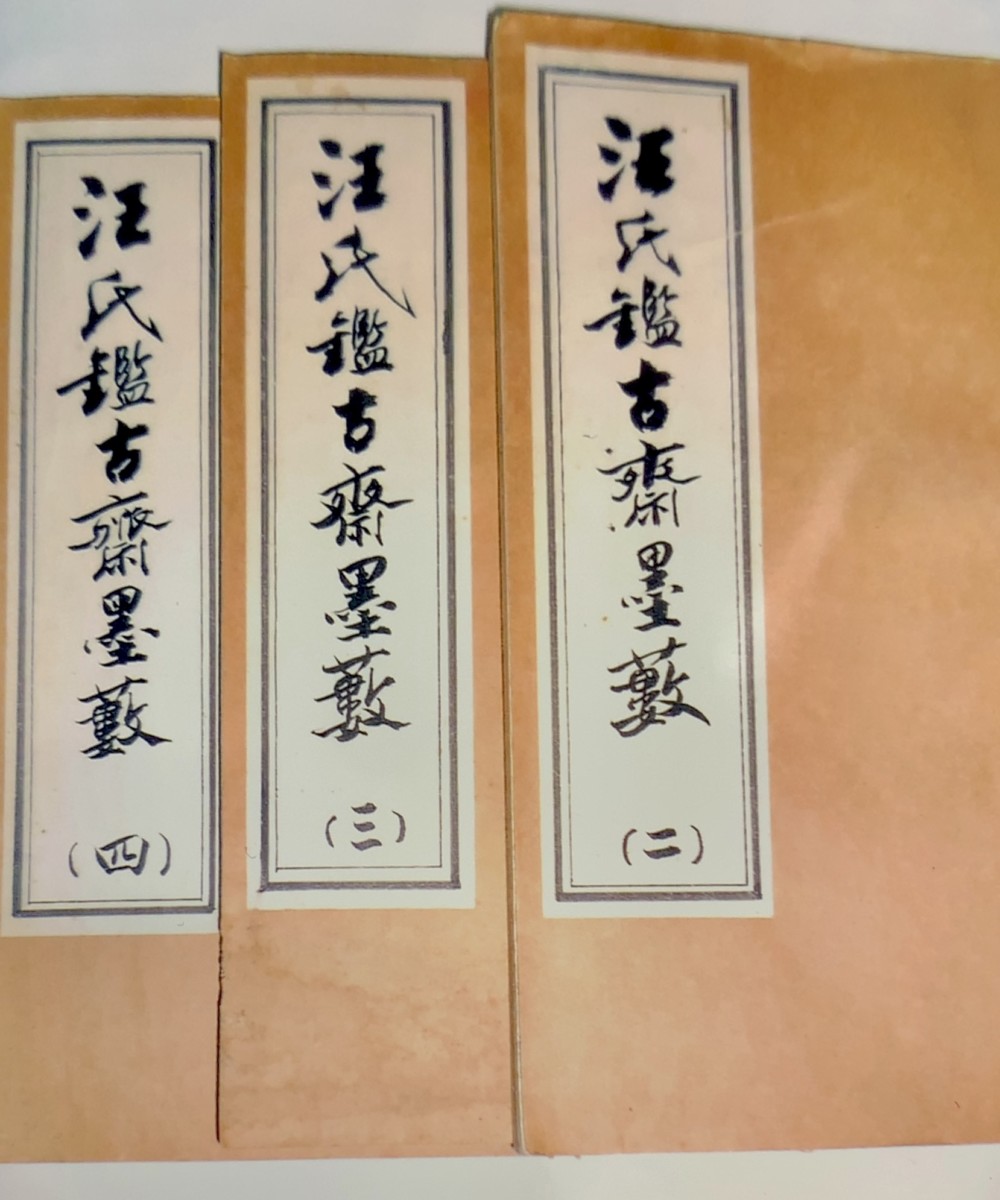 汪氏鑑古齋墨藪
(二)
汪氏鑑古齋墨藪
(三)
汪氏鑑古齋墨藪
(四)